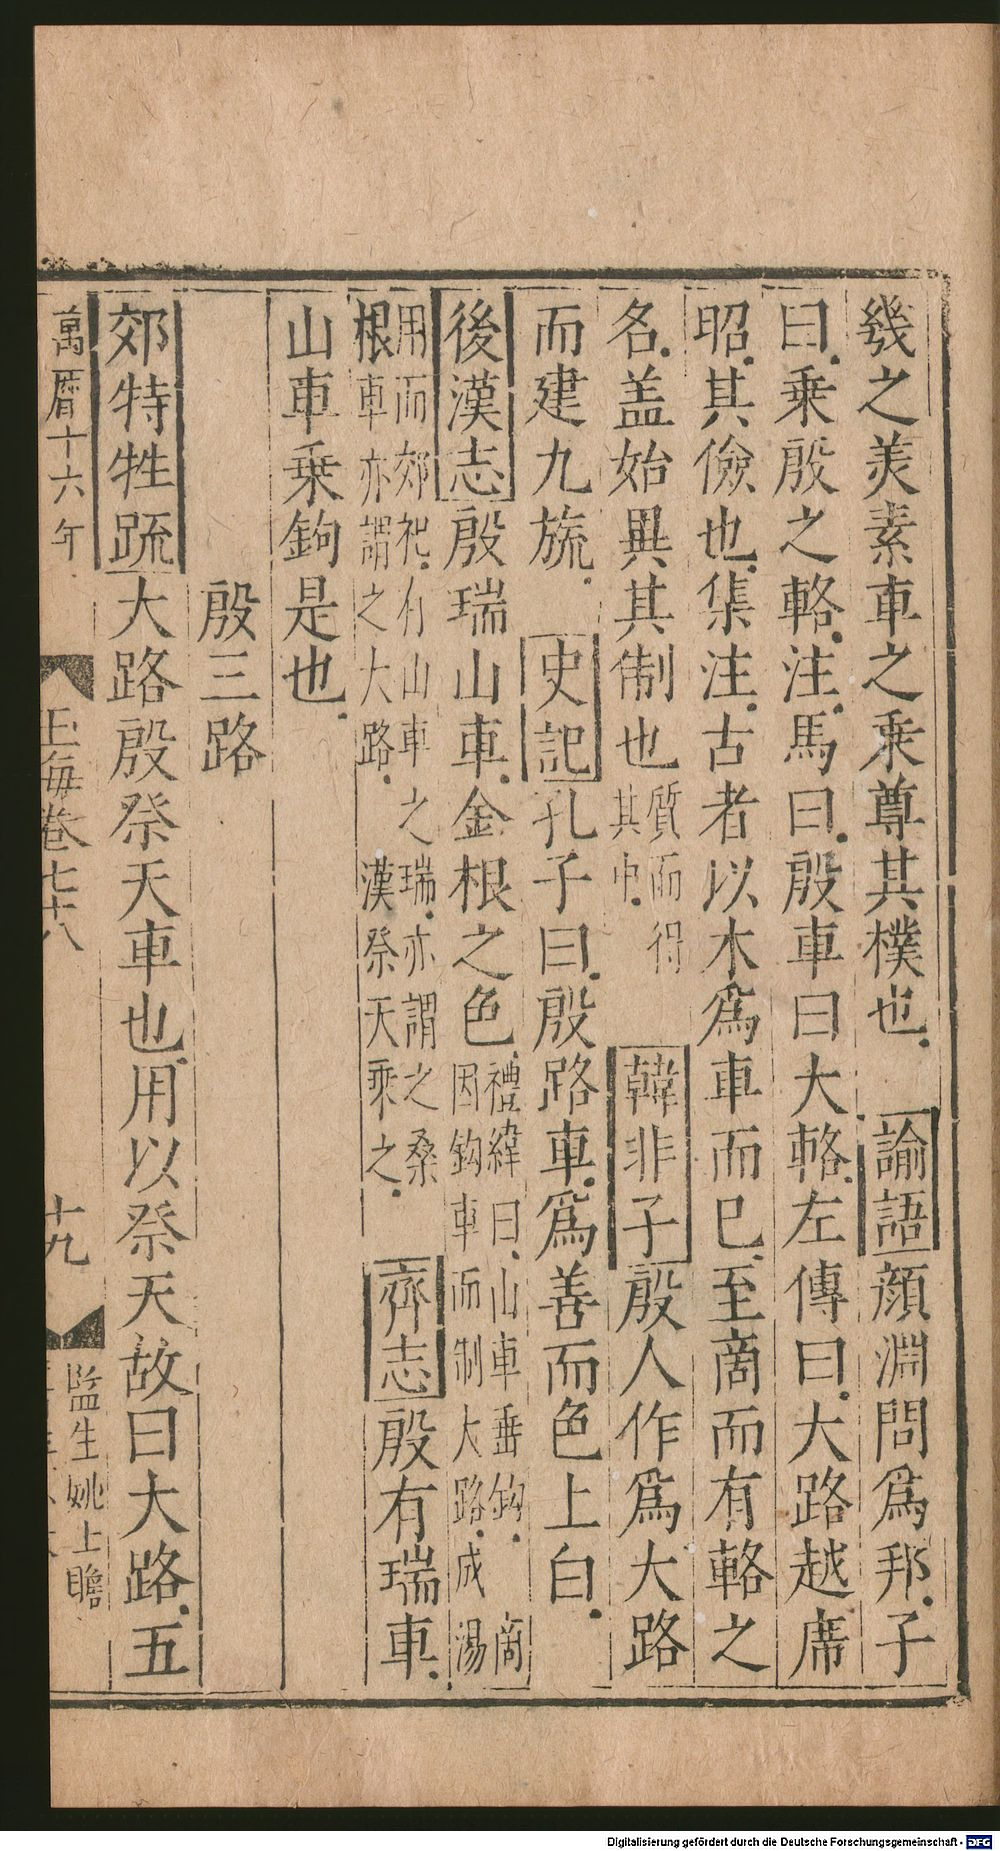 幾之美素車之乘尊其樸也　論語顏淵問爲邦子
曰乘殷之輅注馬曰殷車曰大輅左傳曰大路越席
昭其儉也集注古者以木爲車而已至商而有輅之
名蓋始異其制也質而得其中　韓非子殷人作爲大路
而建九旒　史記孔子曰殷路車爲善而色上白
後漢志殷瑞山車金根之色禮緯曰山車垂鈎　商因鈎車而制大路成湯
用而郊祀有山車之瑞亦謂之桑根車亦謂之大路　漢祭天乘之　齊志殷有瑞車
山車乘鉤是也
殷三路
郊特牲疏大路殷祭天車也用以祭天故曰大路五
萬曆十六年　玉海卷七十八　十九　監生姚上瞻
Digitalisierung gefördert durch die Deutsche Forschungsgemeinschaft - DFG